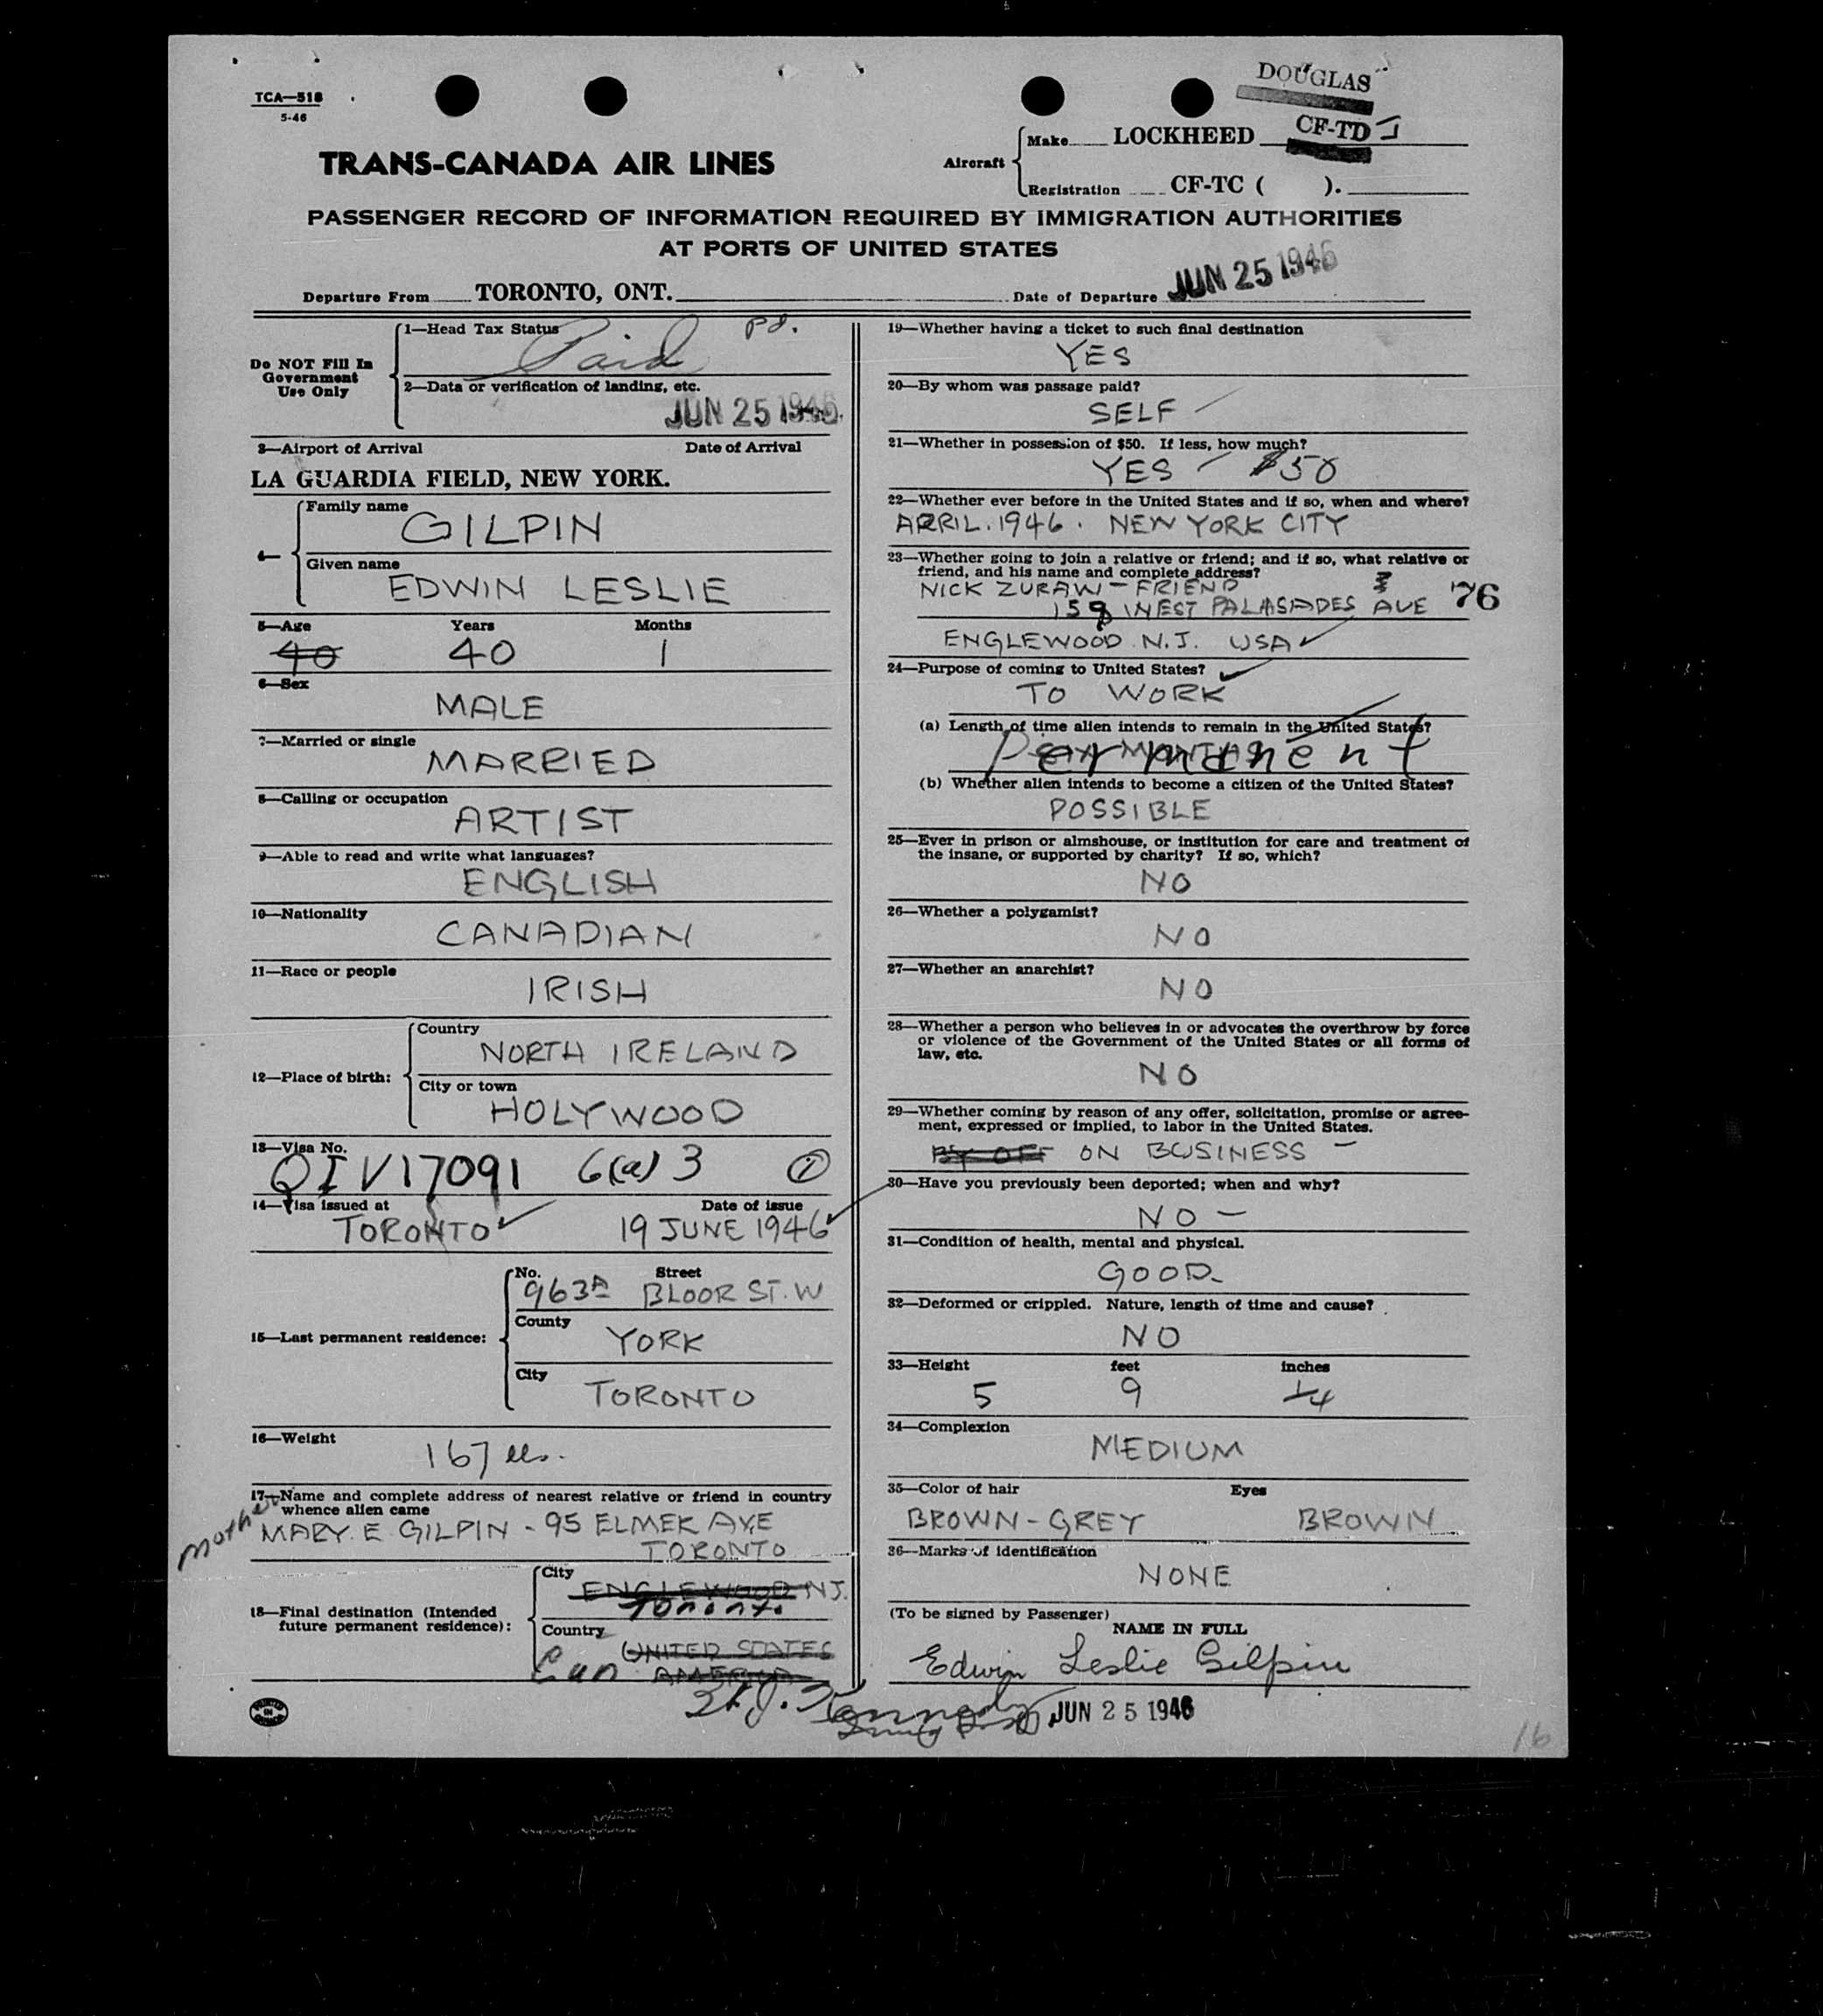 DOUGLAS
TCA—518
5-46
Make LOCKHEED CF-TD J
TRANS-CANADA AIR LINES
Aircraft
Registration CF-TC ( ).
PASSENGER RECORD OF INFORMATION REQUIRED BY IMMIGRATION AUTHORITIES
AT PORTS OF UNITED STATES
Departure From TORONTO, ONT. Date of Departure JUN 25 1946
Do NOT Fill In
Government
Use Only
1—Head Tax Status pd.
Paid
2—Data or verification of landing, etc.
JUN 25 1946
3—Airport of Arrival Date of Arrival
LA GUARDIA FIELD, NEW YORK.
4—
Family name
GILPIN
Given name
EDWIN LESLIE
5—Age Years Months
40 40 1
6—Sex
MALE
7—Married or single
MARRIED
8—Calling or occupation
ARTIST
9—Able to read and write what languages?
ENGLISH
10—Nationality
CANADIAN
11—Race or people
IRISH
12—Place of birth:
Country
NORTH IRELAND
City or town
HOLYWOOD
13—Visa No.
QIV17091 6(a) 3
14—Visa issued at Date of issue
TORONTO 19 JUNE 1946
15—Last permanent residence:
No. Street
963A BLOOR ST. W
County
YORK
City
TORONTO
16—Weight
167 lbs.
17—Name and complete address of nearest relative or friend in country
whence alien came
mother
MARY. E GILPIN - 95 ELMER AVE
TORONTO
18—Final destination (Intended
future permanent residence):
City
ENGLEWOOD NJ.
Toronto
Country
UNITED STATES
Can AMERICA
19—Whether having a ticket to such final destination
YES
20—By whom was passage paid?
SELF
21—Whether in possession of $50. If less, how much?
YES $50
22—Whether ever before in the United States and if so, when and where?
APRIL. 1946. NEW YORK CITY
23—Whether going to join a relative or friend; and if so, what relative or
friend, and his name and complete address?
NICK ZURAW - FRIEND
159 WEST PALASADES AVE 76
ENGLEWOOD N.J. USA
24—Purpose of coming to United States?
TO WORK
(a) Length of time alien intends to remain in the United States?
Permanent
(b) Whether alien intends to become a citizen of the United States?
POSSIBLE
25—Ever in prison or almshouse, or institution for care and treatment of
the insane, or supported by charity? If so, which?
NO
26—Whether a polygamist?
NO
27—Whether an anarchist?
NO
28—Whether a person who believes in or advocates the overthrow by force
or violence of the Government of the United States or all forms of
law, etc.
NO
29—Whether coming by reason of any offer, solicitation, promise or agree-
ment, expressed or implied, to labor in the United States.
BY OFF ON BUSINESS —
30—Have you previously been deported; when and why?
NO —
31—Condition of health, mental and physical.
GOOD
32—Deformed or crippled. Nature, length of time and cause?
NO
33—Height feet inches
5 9 1/4
34—Complexion
MEDIUM
35—Color of hair Eyes
BROWN-GREY BROWN
36—Marks of identification
NONE
(To be signed by Passenger)
NAME IN FULL
Edwin Leslie Gilpin
Kennedy JUN 25 1946
16